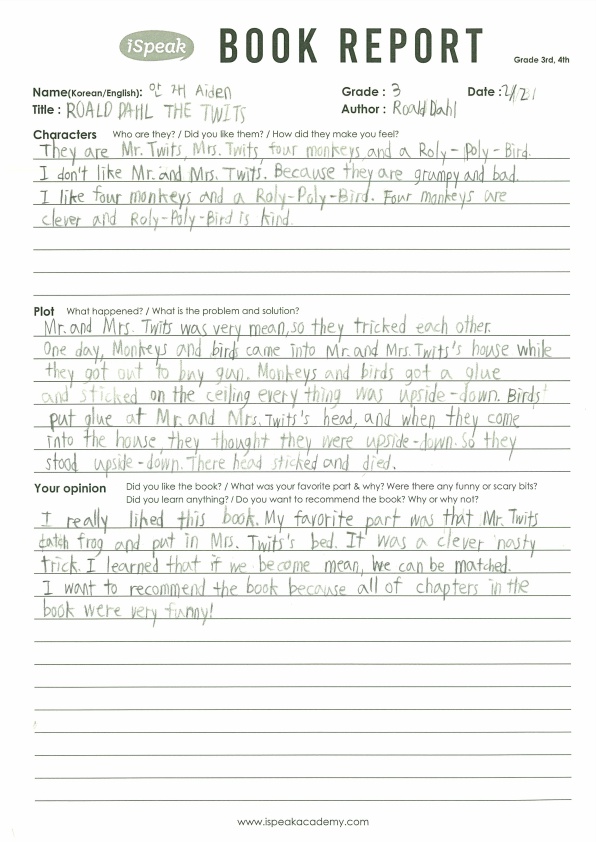 iSpeak BOOK REPORT
Grade 3rd, 4th
Name(Korean/English): Aiden Grade : 3 Date :
Title : ROALD DAHL THE TWITS Author : Roald Dahl
Characters Who are they? / Did you like them? / How did they make you feel?
They are Mr. Twits, Mrs. Twits, four monkeys and a Roly-Poly-Bird.
I don't like Mr. and Mrs. Twits. Because they are grumpy and bad.
I like four monkeys and a Roly-Poly-Bird. Four monkeys are
clever and Roly-Poly-Bird is kind.
Plot What happened? / What is the problem and solution?
Mr. and Mrs. Twits was very mean, so they tricked each other.
One day, Monkeys and birds came into Mr. and Mrs. Twits's house while
they got out to buy gun. Monkeys and birds got a glue
and sticked on the ceiling every thing was upside-down. Birds
put glue at Mr. and Mrs. Twits's head, and when they come
into the house, they thought they were upside-down. So they
stood upside-down. There head sticked and died.
Your opinion Did you like the book? / What was your favorite part & why? Were there any funny or scary bits?
Did you learn anything? / Do you want to recommend the book? Why or why not?
I really liked this book. My favorite part was that Mr. Twits
catch frog and put in Mrs. Twits's bed. It was a clever nasty
trick. I learned that if we become mean, we can be matched.
I want to recommend the book because all of chapters in the
book were very funny!
www.ispeakacademy.com